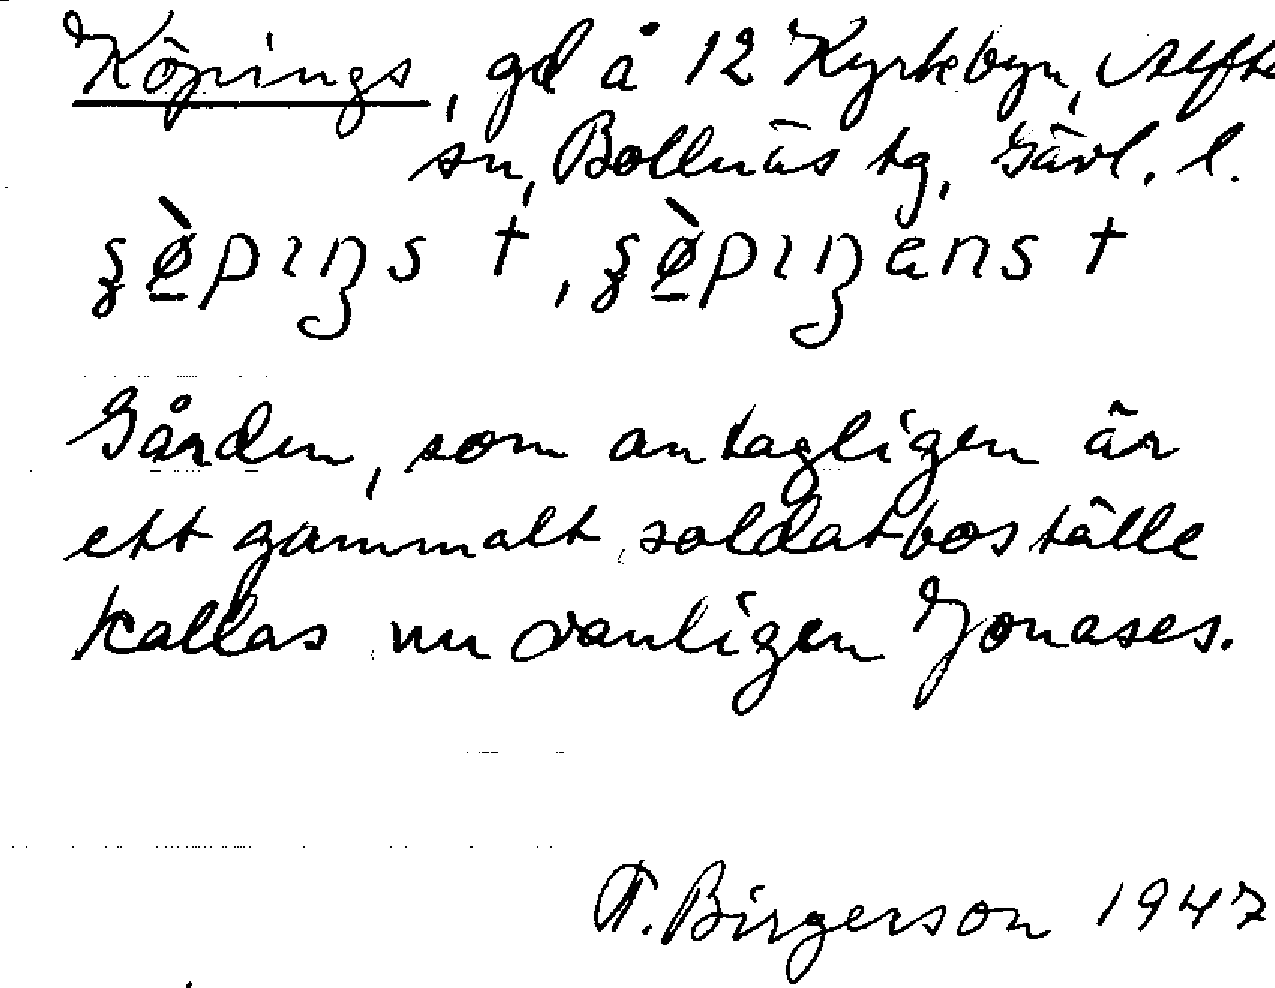 Köpings, gd å 12 Kyrkbyn, Alfta
sn, Bollnäs tg, Gävl. l.
ʂø̀pıŋs †, ʂø̀pıŋans †
Gården, som antagligen är
ett gammalt soldatboställe
kallas nu vanligen Jonases.
T. Birgerson 1947